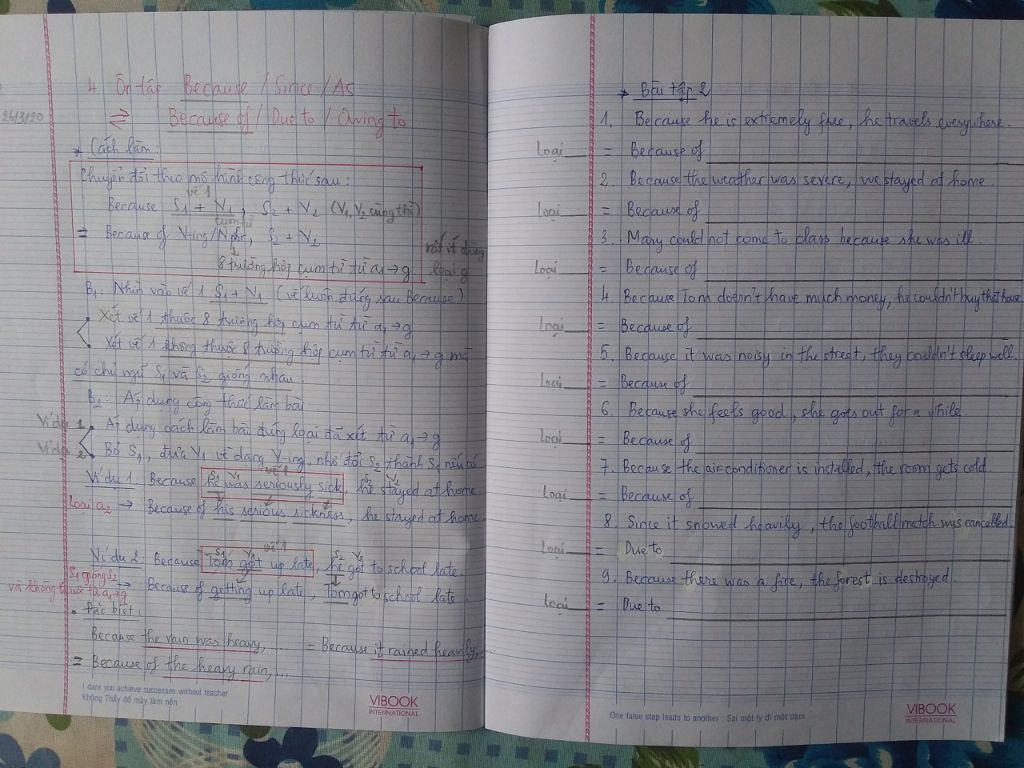 26/3/20
4. Ôn tập Because / Since / As
⇄ Because of / Due to / Owing to
* Cách làm:
Chuyển đổi theo mô hình công thức sau:
vế 1
Because S1 + V1, S2 + V2 (V1, V2 cùng thì)
cụm từ
= Because of V-ing/N phr, S2 + V2
8 trường hợp cụm từ từ a1 → g
rất ít dùng loại g
B1: Nhìn vào vế 1 S1 + V1 (vế luôn đứng sau Because)
• Xét vế 1 thuộc 8 trường hợp cụm từ từ a1 → g
• Xét vế 1 không thuộc 8 trường hợp cụm từ từ a1 → g mà
có chủ ngữ S1 và S2 giống nhau.
B2: Áp dụng công thức làm bài
Ví dụ 1 • Áp dụng cách làm bài đúng loại đã xét từ a1 → g
Ví dụ 2 • Bỏ S1, đưa V1 về dạng V-ing, nhớ đổi S2 thành S1 nếu có
S1 V1 vế 1 S2 V2
Ví dụ 1: Because he was seriously sick, he stayed at home
Loại a2 → Because of his serious sickness, he stayed at home
S1 V1 vế 1 S2 V2
Ví dụ 2: Because Tom got up late, he got to school late.
S1 giống S2
và không thuộc từ a1 → g
→ Because of getting up late, Tom got to school late
• Đặc biệt:
Because the rain was heavy, ... = Because it rained heavily, ...
= Because of the heavy rain, ...
I dare you achieve successes without teacher
Không Thầy đố mày làm nên
VIBOOK
INTERNATIONAL
* Bài tập 2
1. Because he is extremely free, he travels everywhere.
Loại = Because of
2. Because the weather was severe, we stayed at home.
Loại = Because of
3. Mary could not come to class because she was ill.
Loại = Because of
4. Because Tom doesn't have much money, he couldn't buy that house
Loại = Because of
5. Because it was noisy in the street, they couldn't sleep well.
Loại = Because of
6. Because she feels good, she goes out for a while.
Loại = Because of
7. Because the air conditioner is installed, the room gets cold
Loại = Because of
8. Since it snowed heavily, the football match was cancelled.
Loại = Due to
9. Because there was a fire, the forest is destroyed
Loại = Due to
One false step leads to another : Sai một ly đi một dặm
VIBOOK
INTERNATIONAL